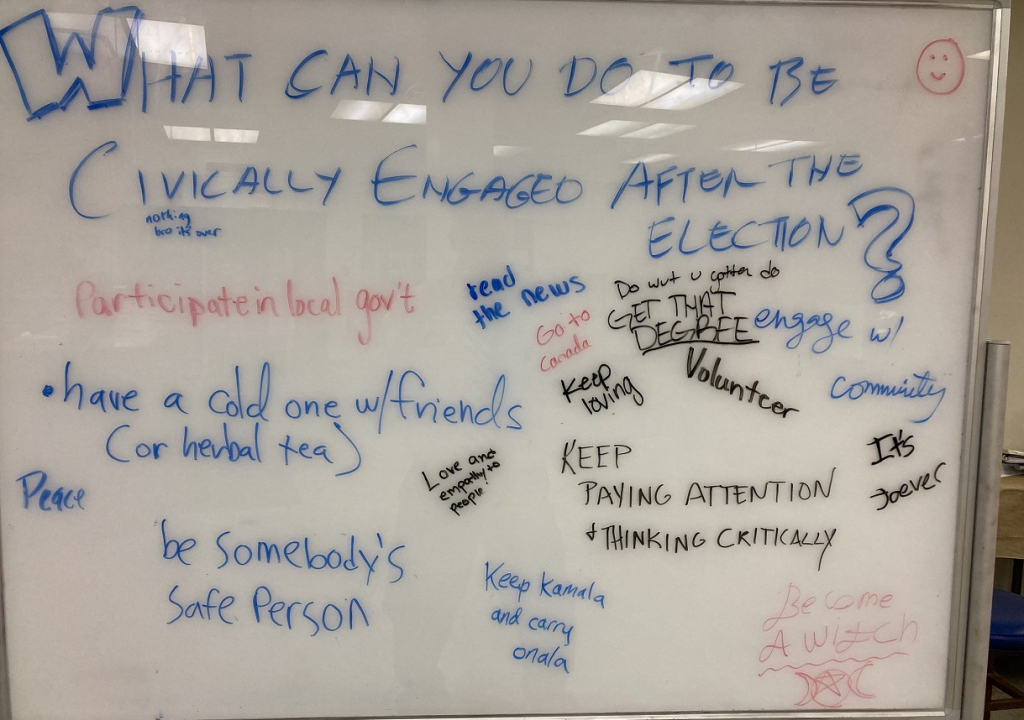 WHAT CAN YOU DO TO BE
CIVICALLY ENGAGED AFTER THE
ELECTION?
nothing
bro it's over
Participate in local gov't
read
the news
Go to
Canada
Do wut u gotta do
GET THAT
DEGREE
engage w/
community
Keep
loving
Volunteer
• have a cold one w/friends
(or herbal tea)
Love and
empathy to
people
KEEP
PAYING ATTENTION
+ THINKING CRITICALLY
It's
Joever
Peace
be somebody's
Safe Person
Keep Kamala
and carry
onala
Become
A witch